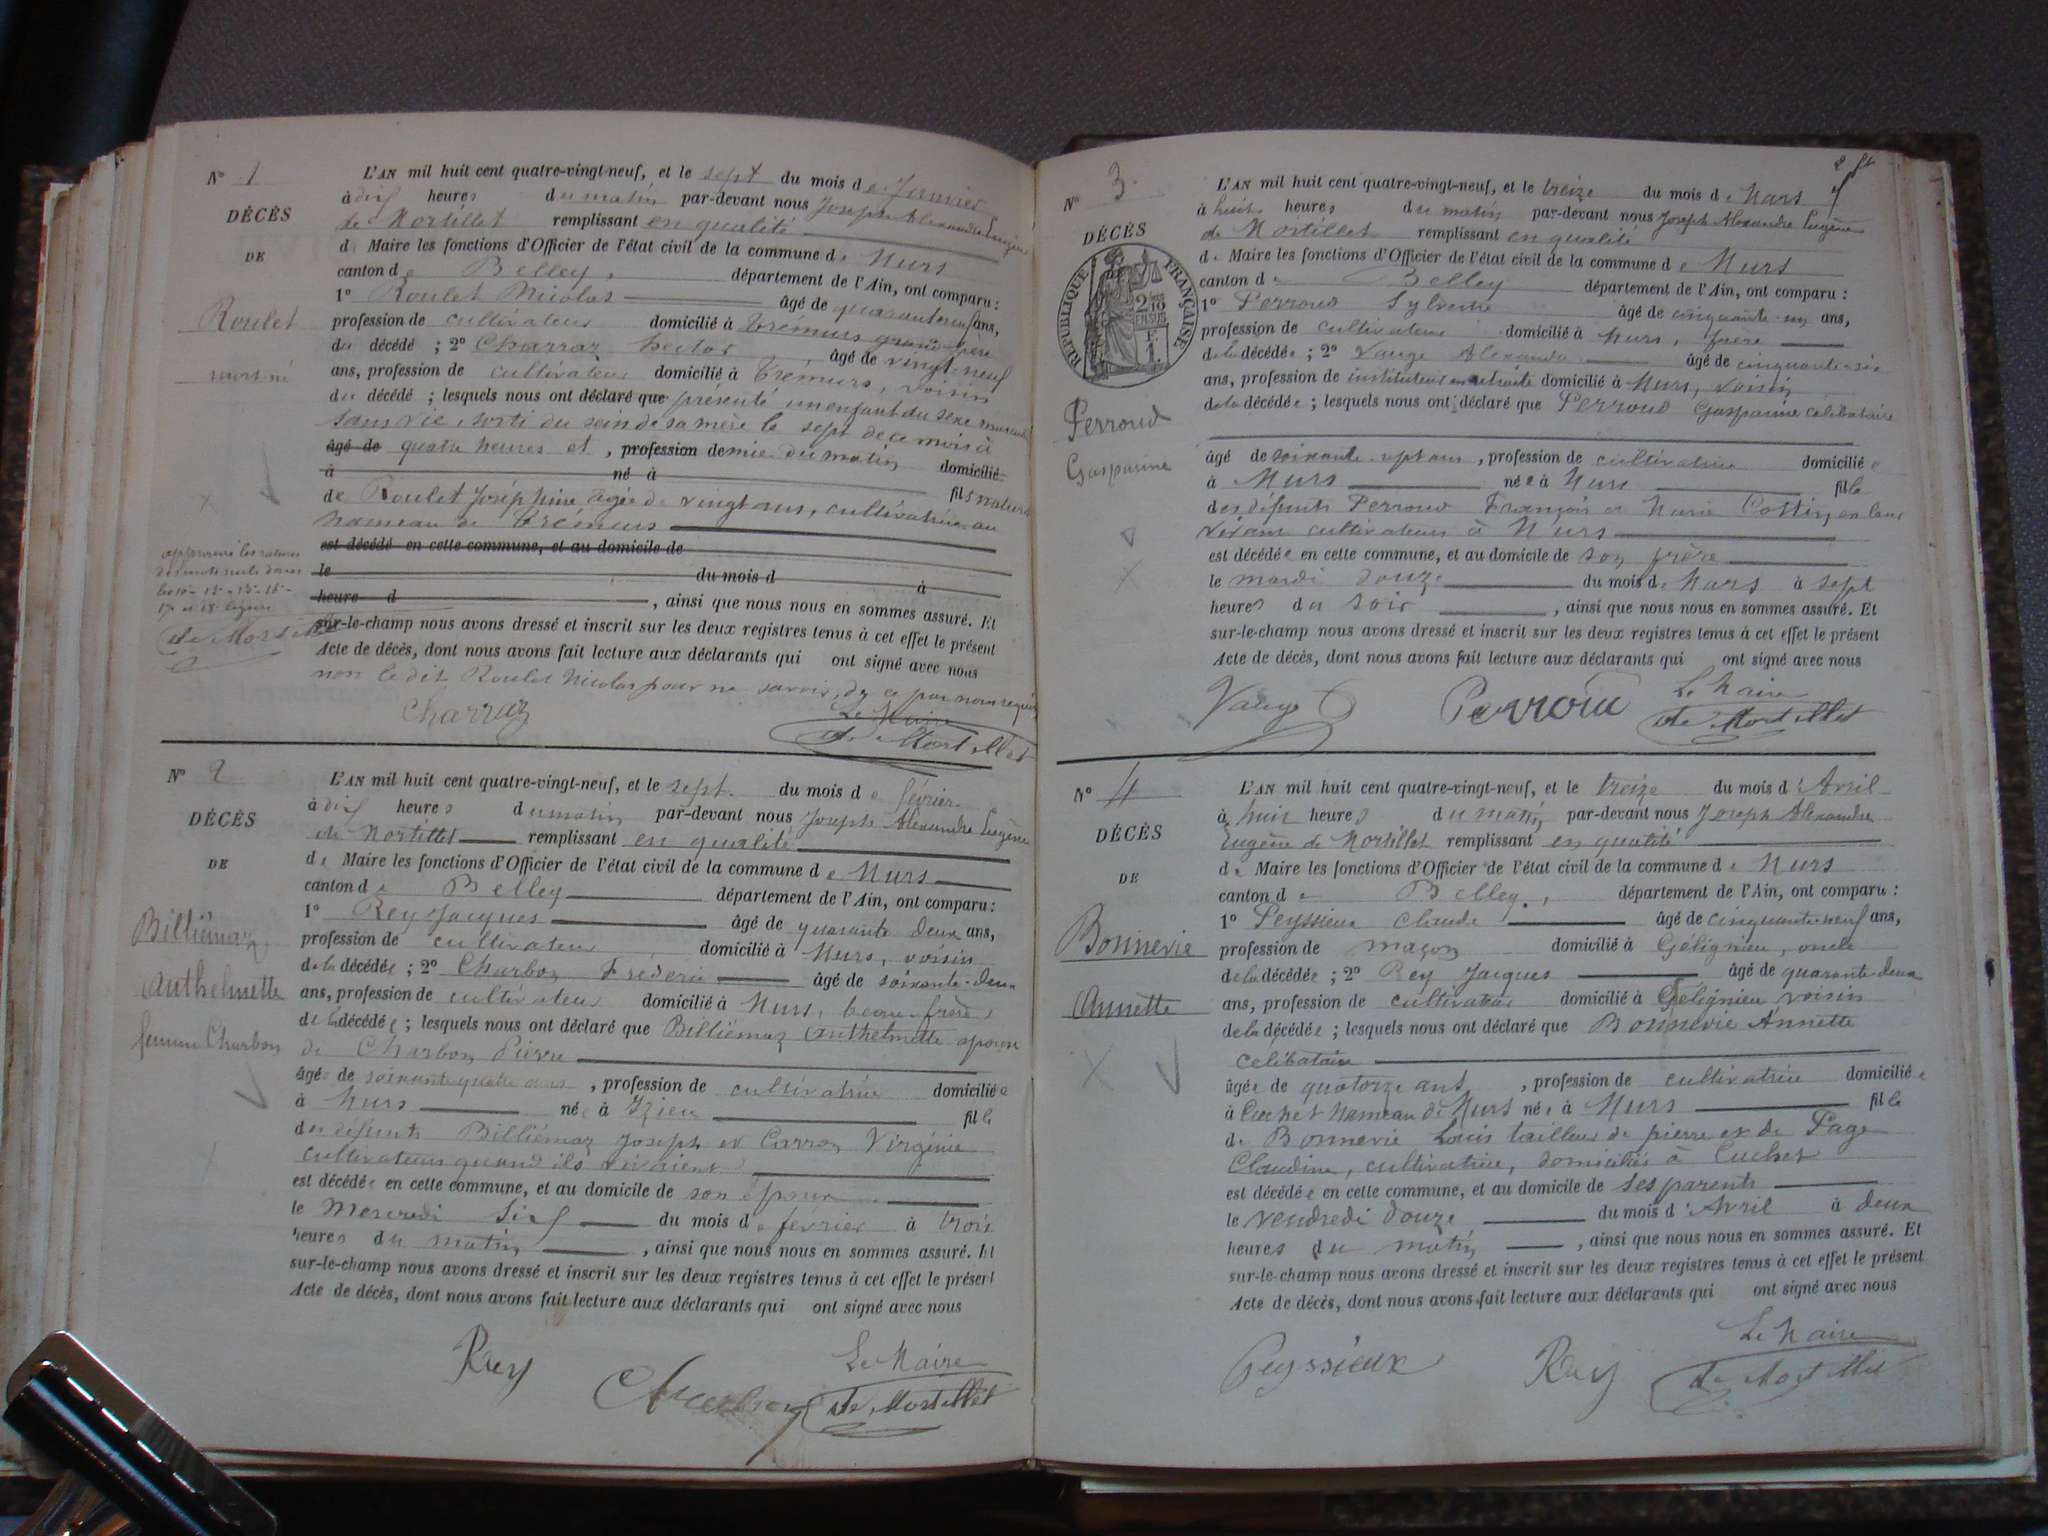 N° 1
DÉCÈS
DE
Roulet
mort-né
L'AN mil huit cent quatre-vingt-neuf, et le sept du mois de Janvier
à dix heures du matin par-devant nous Joseph Alexandre Eugène
de Mortillet remplissant en qualité
de Maire les fonctions d'Officier de l'état civil de la commune de Murs
canton de Belley, département de l'Ain, ont comparu :
1° Roulet Nicolas âgé de quarante neuf ans,
profession de cultivateur domicilié à Crémurs grand père
du décédé ; 2° Charraz hector âgé de vingt-neuf
ans, profession de cultivateur domicilié à Crémurs, voisin
du décédé ; lesquels nous ont déclaré que présenté un enfant du sexe masculin
sans vie, sorti du sein de sa mère le sept de ce mois à
âgé de quatre heures et , profession demie du matin domicilié
à né à fils naturel
de Roulet Joséphine âgée de vingt ans, cultivatrice au
hameau de Crémurs
est décédé en cette commune, et au domicile de
le du mois d à
heure d , ainsi que nous nous en sommes assuré. Et
sur-le-champ nous avons dressé et inscrit sur les deux registres tenus à cet effet le présent
Acte de décès, dont nous avons fait lecture aux déclarants qui ont signé avec nous
non le dit Roulet Nicolas pour ne savoir, de ce par nous requis
approuvé les ratures
des mots nuls dans
les 10 - 12 - 15 - 16 -
17 et 18 lignes
de Mortillet
Charraz
Le Maire
de Mortillet
N° 2
DÉCÈS
DE
Billiémaz
Anthelmette
femme Charbon
L'AN mil huit cent quatre-vingt-neuf, et le sept du mois de février
à dix heures du matin par-devant nous Joseph Alexandre Eugène
de Mortillet remplissant en qualité
de Maire les fonctions d'Officier de l'état civil de la commune de Murs
canton de Belley département de l'Ain, ont comparu :
1° Rey Jacques âgé de quarante deux ans,
profession de cultivateur domicilié à Murs, voisin
de la décédée ; 2° Charbon Fréderic âgé de soixante-deux
ans, profession de cultivateur domicilié à Murs, beau-frère
de la décédée ; lesquels nous ont déclaré que Billiémaz Anthelmette épouse
de Charbon Pierre
âgée de soixante quatre ans , profession de cultivatrice domiciliée
à Murs née à Izieu fille
des défunts Billiémaz Joseph et Carron Virginie
cultivateurs quand ils vivaient
est décédée en cette commune, et au domicile de son époux
le Mercredi six du mois de février à trois
heures du matin , ainsi que nous nous en sommes assuré. Et
sur-le-champ nous avons dressé et inscrit sur les deux registres tenus à cet effet le présent
Acte de décès, dont nous avons fait lecture aux déclarants qui ont signé avec nous
Rey
Charbon
Le Maire
de Mortillet
N° 3
DÉCÈS
RÉPUBLIQUE FRANÇAISE
2/10 EN SUS
1 F.
Perroud
Gasparine
L'AN mil huit cent quatre-vingt-neuf, et le treize du mois de Mars
à huit heures du matin par-devant nous Joseph Alexandre Eugène
de Mortillet remplissant en qualité
de Maire les fonctions d'Officier de l'état civil de la commune de Murs
canton de Belley département de l'Ain, ont comparu :
1° Perroud Sylvestre âgé de cinquante-un ans,
profession de cultivateur domicilié à Murs, frère
de la décédée ; 2° Vauge Alexandre âgé de cinquante-six
ans, profession de instituteur en retraite domicilié à Murs, voisin
de la décédée ; lesquels nous ont déclaré que Perroud Gasparine célibataire
âgé de soixante-sept ans , profession de cultivatrice domiciliée
à Murs née à Murs fille
des défunts Perroud François et Marie Cottin, en leur
vivant cultivateurs à Murs
est décédée en cette commune, et au domicile de son frère
le mardi douze du mois de Mars à sept
heures du soir , ainsi que nous nous en sommes assuré. Et
sur-le-champ nous avons dressé et inscrit sur les deux registres tenus à cet effet le présent
Acte de décès, dont nous avons fait lecture aux déclarants qui ont signé avec nous
Vauge
Perroud
Le Maire
de Mortillet
N° 4
DÉCÈS
DE
Bonnevie
Annette
L'AN mil huit cent quatre-vingt-neuf, et le treize du mois d'Avril
à huit heures du matin par-devant nous Joseph Alexandre
Eugène de Mortillet remplissant en qualité
de Maire les fonctions d'Officier de l'état civil de la commune de Murs
canton de Belley, département de l'Ain, ont comparu :
1° Peyssieux Claude âgé de cinquante-neuf ans,
profession de maçon domicilié à Gélignieu, oncle
de la décédée ; 2° Rey Jacques âgé de quarante-deux
ans, profession de cultivateur domicilié à Gélignieu voisin
de la décédée ; lesquels nous ont déclaré que Bonnevie Annette
célibataire
âgée de quatorze ans , profession de cultivatrice domiciliée
à Cuchet hameau de Murs née à Murs fille
de Bonnevie Louis tailleur de pierre et de Page
Claudine, cultivatrice, domiciliés à Cuchet
est décédée en cette commune, et au domicile de ses parents
le vendredi douze du mois d'Avril à deux
heures du matin , ainsi que nous nous en sommes assuré. Et
sur-le-champ nous avons dressé et inscrit sur les deux registres tenus à cet effet le présent
Acte de décès, dont nous avons fait lecture aux déclarants qui ont signé avec nous
Peyssieux
Rey
Le Maire
de Mortillet